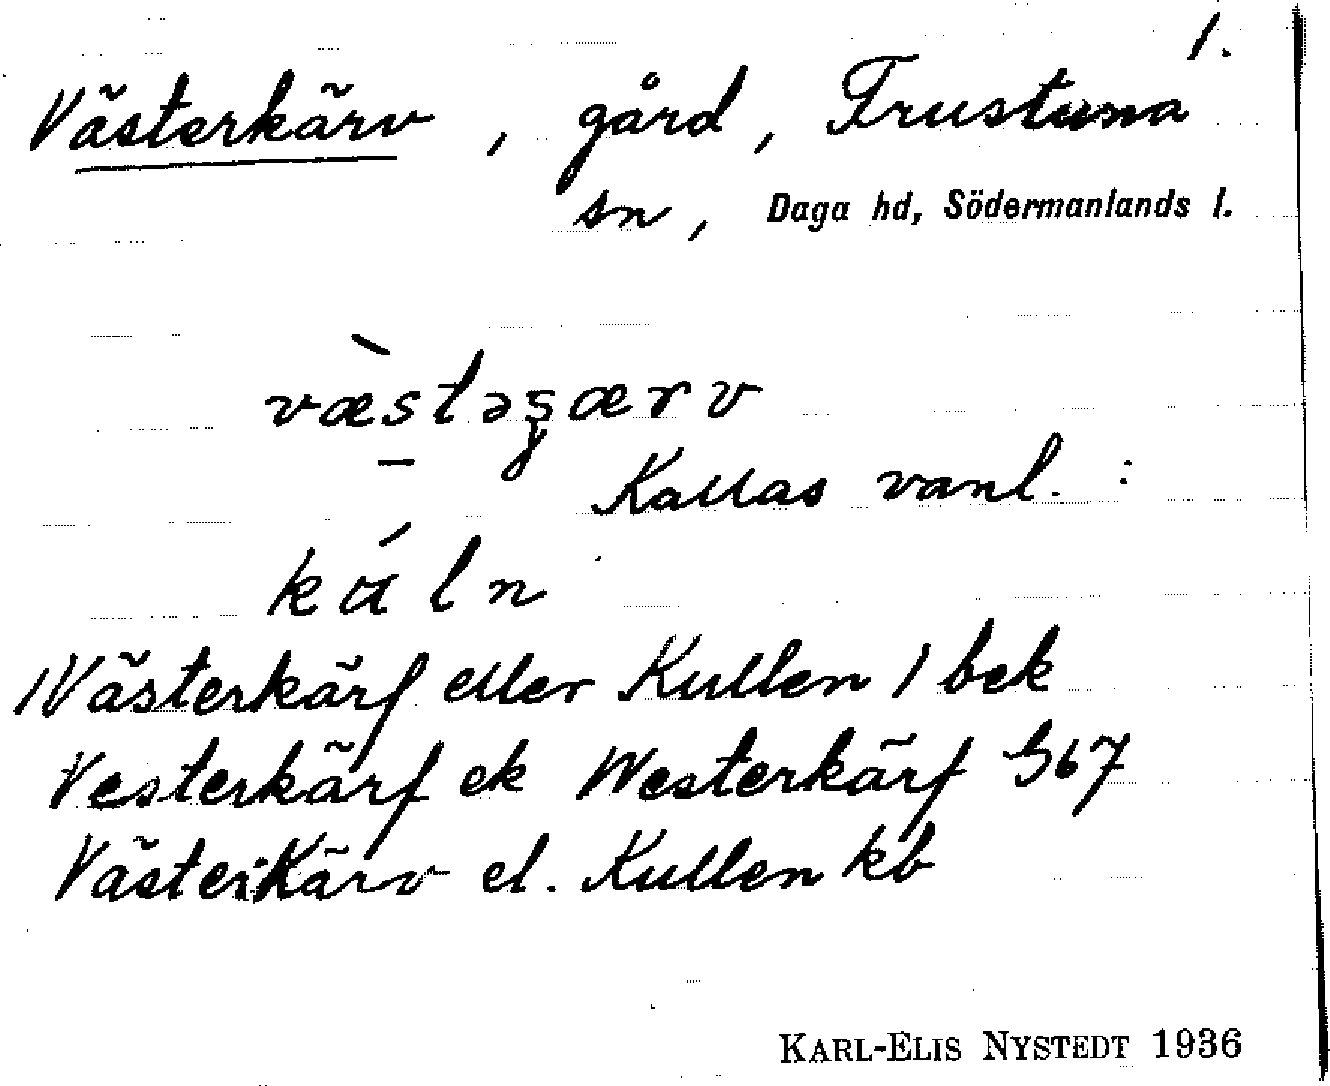 1.
Västerkärv, gård, Frustuna
sn, Daga hd, Södermanlands l.
væ̀stəʂærv
Kallas vanl. :
káln
/Västerkärf eller Kullen/ bek
Vesterkärf ek Westerkärf G67
Västerkärv el. Kullen kb
KARL-ELIS NYSTEDT 1936